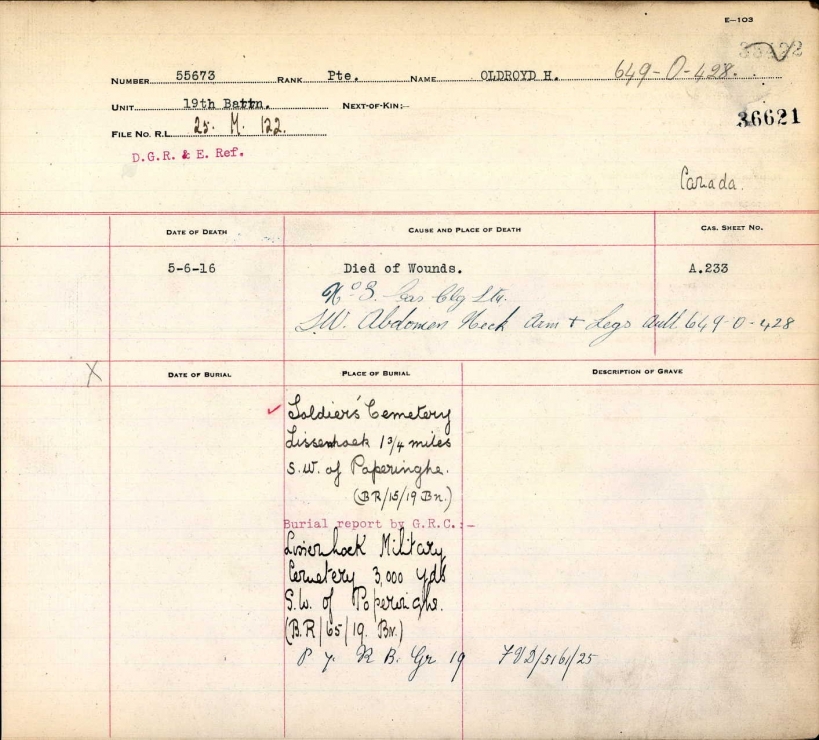 E—103
NUMBER 55673 RANK Pte. NAME OLDROYD H. 649-O-428.
UNIT 19th Battn. NEXT-OF-KIN:—
36621
FILE NO. R.L. 25. M. 122.
D.G.R. & E. Ref.
Canada.
DATE OF DEATH CAUSE AND PLACE OF DEATH CAS. SHEET NO.
5-6-16 Died of Wounds. A.233
Cas Clg Stn.
S.W. Abdomen Neck Arm + Legs Auth 649-O-428
X DATE OF BURIAL PLACE OF BURIAL DESCRIPTION OF GRAVE
Soldiers' Cemetery
Lissenhoek 1 3/4 miles
S.W. of Poperinghe.
(BR/15/19 Bn.)
Burial report by G.R.C.:—
Lissenhock Military
Cemetery 3,000 yds
S.W. of Poperinghe.
(B.R/65/19. Bn.)
P 7. R B. Gr 19